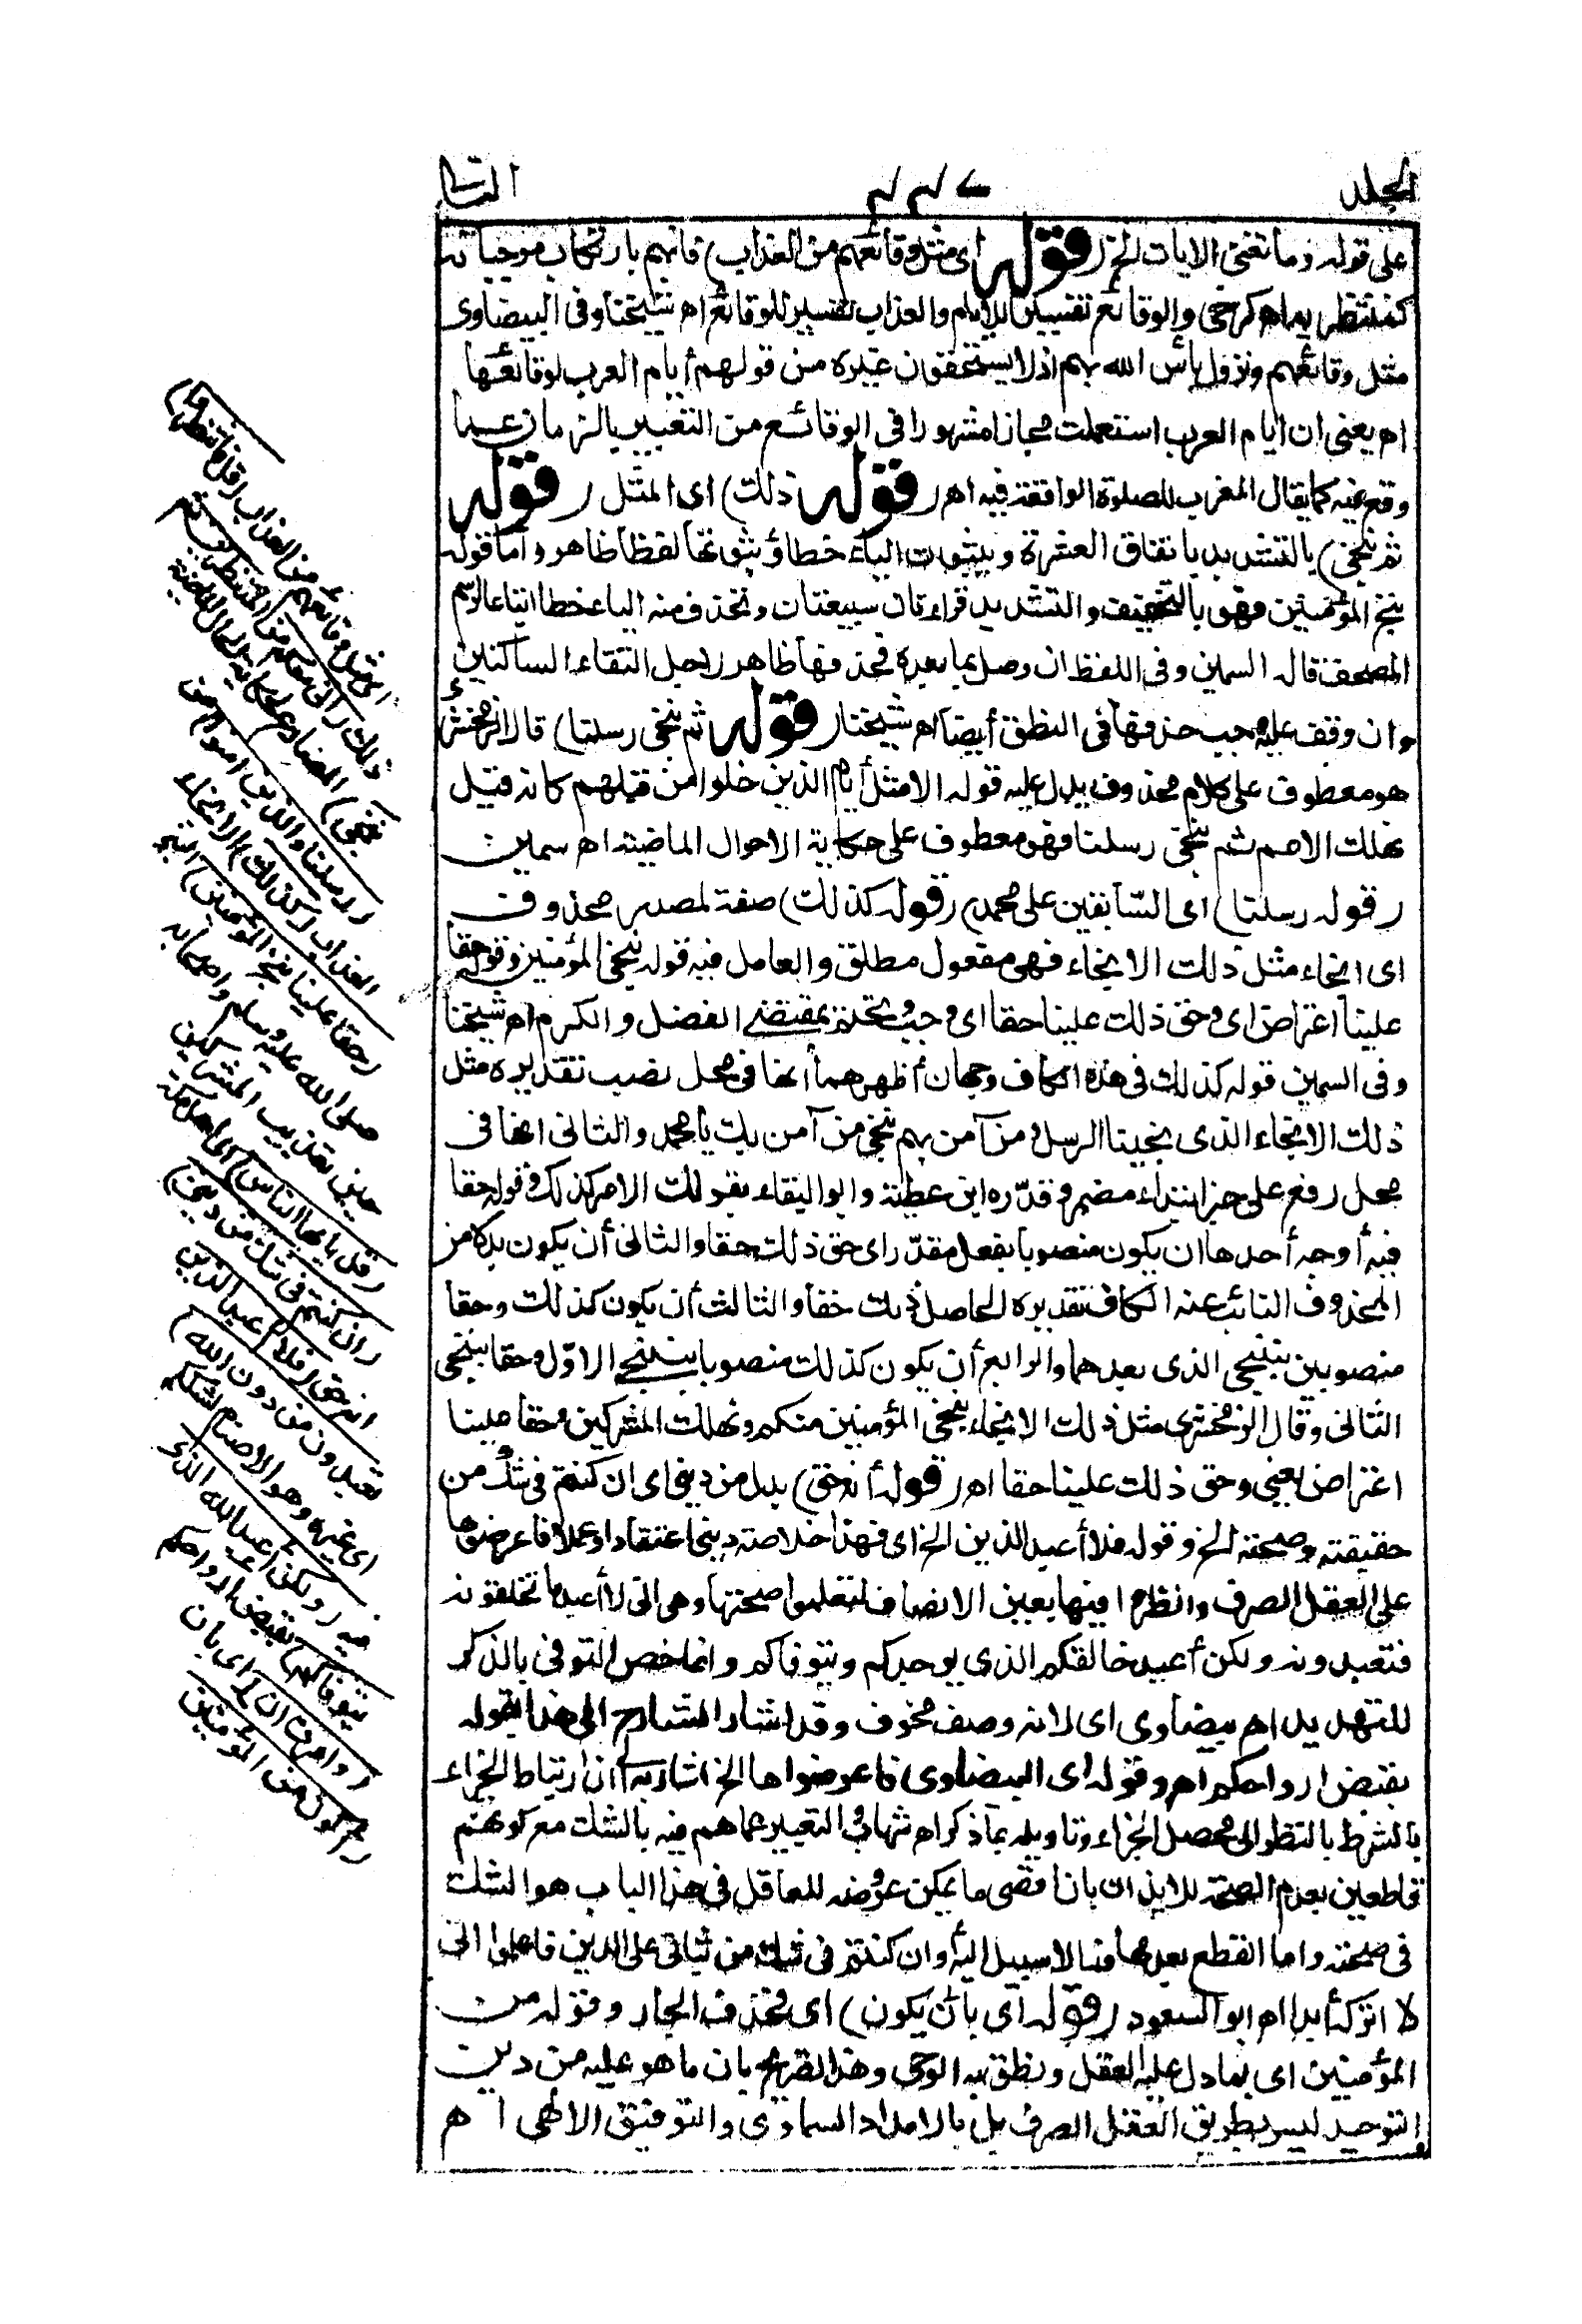 المجلد ٤٤٧ الثانى
على قوله وما تغنى الايات الخ (قوله اى مثل وقائعهم من العذاب) فانهم بارتكاب موجباته
كمنتظريه اه كرخى والوقائع تفسير للايام والعذاب تفسير للوقائع اه شيخنا وفى البيضاوى
مثل وقائعهم ونزول بأس الله بهم اذ لا يستحقون غيره من قولهم أيام العرب لوقائعها
اه يعنى ان ايام العرب استعملت مجازا مشهورا فى الوقائع من التعبير بالزمان عما
وقع فيه كما يقال المغرب للصلوة الواقعة فيه اه (قوله ذلك) اى المثل (قوله
ثم ننجى) بالتشديد باتفاق العشرة وبثبوت الياء خطا وثبوتها لفظا ظاهر وأما قوله
ننج المؤمنين فهو بالتخفيف والتشديد قراءتان سبعيتان وتحذف منه الياء خطا اتباعا لرسم
المصحف قاله السمين وفى اللفظ ان وصل بما بعده فحذفها ظاهر لاجل التقاء الساكنين
وان وقف عليه وجب حذفها فى النطق أيضا اه شيخنا (قوله ثم ننجى رسلنا) قال الزمخشرى
هو معطوف على كلام محذوف يدل عليه قوله الا مثل أيام الذين خلوا من قبلهم كانه قيل
نهلك الامم ثم ننجى رسلنا فهو معطوف على حكاية الاحوال الماضية اه سمين
(قوله رسلنا) اى السابقين على محمد (قوله كذلك) صفة لمصدر محذوف
اى انجاء مثل ذلك الانجاء فهى مفعول مطلق والعامل فيه قوله ننجى المؤمنين وقوله حقا
علينا اعتراض اى وحق ذلك علينا حقا اى وجب وتحتم بمقتضى الفضل والكرم اه شيخنا
وفى السمين قوله كذلك فى هذه الكاف وجهان أظهرهما أنها فى محل نصب تقديره مثل
ذلك الانجاء الذى نجينا الرسل ومن آمن بهم ننجى من آمن بك يا محمد والثانى انها فى
محل رفع على خبر ابتداء مضمر وقدّره ابن عطية وابو البقاء بقولك الامر كذلك وقوله حقا
فيه أوجه أحدها ان يكون منصوبا بفعل مقدّر اى حق ذلك حقا والثانى أن يكون بدلا من
المحذوف النائب عنه الكاف تقديره الحاصل ذلك حقا والثالث أن يكون كذلك وحقا
منصوبين بننجى الذى بعدهما والرابع أن يكون كذلك منصوبا بننجى الاوّل وحقا بننجى
الثانى وقال الزمخشرى مثل ذلك الانجاء ننجى المؤمنين منكم ونهلك المشركين وحقا علينا
اعتراض يعنى وحق ذلك علينا حقا اه (قوله أنه حق) بدل من دينى اى ان كنتم فى شك من
حقيقته وصحته الخ وقوله فلا أعبد الذين الخ اى فهذا خلاصة دينى اعتقادا وعملا فاعرضوها
على العقل الصرف وانظروا فيها بعين الانصاف لتعلموا صحتها وهى انى لا أعبد ما تخلقونه
فتعبدونه ولكن أعبد خالقكم الذى يوجدكم ويتوفاكم وانما خص التوفى بالذكر
للتهديد اه بيضاوى اى لانه وصف مخوف وقد اشار الشارح الى هذا بقوله
بقبض ارواحكم اه وقوله اى البيضاوى فاعرضوها الخ اشار به أن ارتباط الجزاء
بالشرط بالنظر الى محصل الجزاء وتاويله بما ذكر اه شهاب والتعبير عما هم فيه بالشك مع كونهم
قاطعين بعدم الصحة للايذان بان أقصى ما يمكن عروضه للعاقل فى هذا الباب هو الشك
فى صحته واما القطع بعدمها فما لا سبيل اليه أو ان كنتم فى شك من ثباتى على الدين فاعلموا انى
لا اتركه أبدا اه ابو السعود (قوله اى بان يكون) اى فحذف الجار وقوله من
المؤمنين اى بما دل عليه العقل ونطق به الوحى وهذا تصريح بان ما هو عليه من دين
التوحيد ليس بطريق العقل الصرف بل بالامداد السماوى والتوفيق الالهى ا ه
اى مثل وقائعهم من العذاب (قل فانتظروا)
ذلك (انى معكم من المنتظرين ثم
ننجى) المضارع لحكاية الحال الماضية
(رسلنا والذين امنوا) من
العذاب (كذلك) الانجاء
(حقا علينا ننج المؤمنين) النبى
صلى الله عليه وسلم واصحابه
حين تعذيب المشركين
(قل يا يها الناس) اى اهل مكة
(ان كنتم فى شك من دينى)
انه حق (فلا اعبد الذين
تعبدون من دون الله)
اى غيره وهو الاصنام لشككم
فيه (ولكن اعبد الله الذى
يتوفاكم) بقبض ارواحكم
(وامرت ان) اى بان
(اكون من المؤمنين